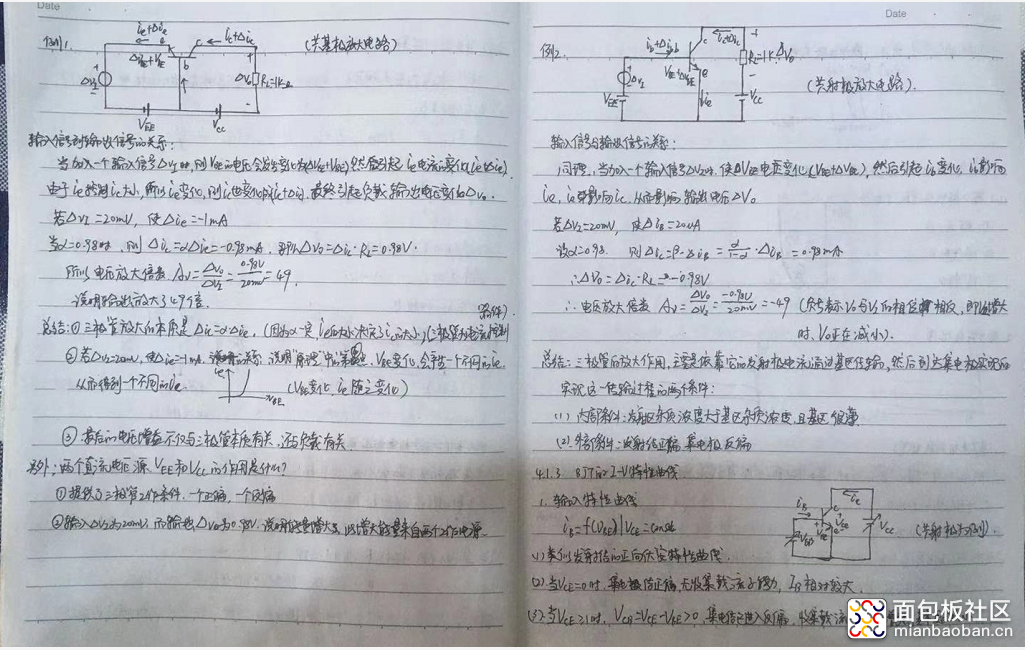 Date
例1.
ie+Δie
ic+Δic
(共基极放大电路)
e
c
b
ΔVI
ΔVBE+VBE
ΔVo
RL=1kΩ
VEE
VCC
输入信号到输出信号的关系:
当加入一个输入信号ΔVI时,则VBE的电压会变化为(ΔVBE+VBE)然后引起ie电流的变化
由于ie控制ic大小,所以ie变化,则ic也变化成ic+Δic,最终引起负载输出电压变化ΔVo.
若ΔVI=20mV, 使Δie=-1mA
当α=0.98时,则Δic=αΔie=-0.98mA,ΔVo=Δic·RL=0.98V.
所以电压放大倍数 Av=ΔVo/ΔVI=0.98V/20mV=49.
说明放大了49倍.
总结:①三极管放大的本质是Δic=αΔie.(因为α一定,ie的大小决定了ic的大小)
②若ΔVI=20mV,使Δie=-1mA. VBE变化,会产生一个不同的ie.
从而得到一个不同的ic.
ie
VBE
(VBE变化,ie随之变化)
③最后的电压增益不仅与三极管本质有关,还与负载有关.
另外:两个直流电压源VEE和VCC的作用是什么?
①提供了三极管工作条件.一个正偏,一个反偏
②输入ΔVI为20mV,而输出ΔVo为0.98V.说明能量增大了,此增大能量来自两个工作电源.
Date
例2.
iB+ΔiB
ic+Δic
b
c
e
ΔVI
VBE+ΔVBE
ie
RL=1k
ΔVo
VEE
VCC
(共射极放大电路).
输入信号与输出信号的关系:
同理,当加入一个输入信号ΔVI时,使ΔVBE电压变化(VBE+ΔVBE),然后引起iB变化,iB影响
ie,ie再影响ic,从而影响输出电压ΔVo
若ΔVI=20mV, 使ΔiB=20uA
设α=0.98. 则Δic=β·ΔiB=α/1-α·ΔiB=0.98mA
∴ΔVo=-Δic·RL=-0.98V
∴电压放大倍数 Av=ΔVo/ΔVI=-0.98V/20mV=-49 (负号表示Vo与VI的相位相反,即VI增大
时,Vo正在减小).
总结:三极管的放大作用,主要是依靠它的发射极电流通过基区传输,然后到达集电极实现的
实现这一传输过程的两个条件:
(1)内部条件:发射区杂质浓度大于基区杂质浓度,且基区很薄
(2)外部条件:发射结正偏,集电极反偏
4.1.3 BJT的I-V特性曲线
1.输入特性曲线
iB=f(VBE)|VCE=const
(共射极为例).
iB
ic
b
c
e
VCC
(1)类似发射结的正向伏安特性曲线.
(2)当VCE=0时,集电极结正偏,无收集载流子能力,IB相对较大.
(3)当VCE≥1时,VCB=VCE-VBE>0,集电结已进入反偏,收集载流
面包板社区
mianbaoban.cn